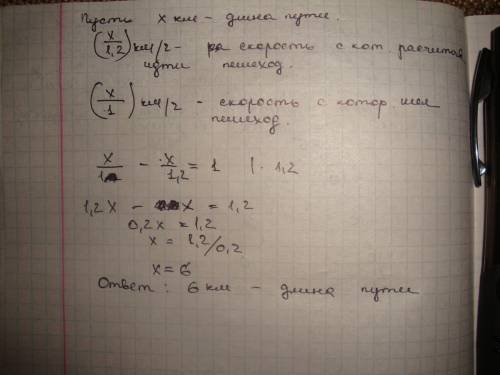 Пусть x км – длина пути.
(x/1,2) км/г – скорость с кот. расчитал
идти пешеход.
(x/1) км/г – скорость с котор. шел
пешеход.
x/1 - x/1,2 = 1 | · 1,2
1,2x - x = 1,2
0,2x = 1,2
x = 1,2/0,2
x = 6
Ответ: 6 км – длина пути